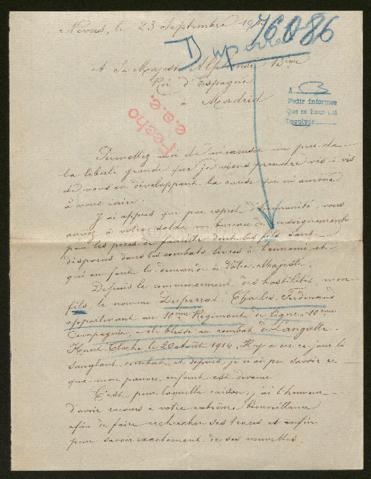 Nevers, le 23 Septembre 19
76086
Duperrat
A Sa Majesté Alphonse
Roi d'Espagne
à Madrid
Fecho
A
Pedir informes
Permettez moi de m'excuser
la liberté grande que je viens prendre vis à vis
de vous en développant la cause qui m'amène
à vous écrire.
J'ai appris que par esprit d'humanité vous
aviez à votre solde un bureau de renseignements
pour les pères de famille dont les fils sont
disparus dans les combats livrés à l'ennemi et
qui en font la demande à Votre Majesté.
Depuis le commencement des hostilités, mon
fils, le nommé Duperrat Charles Ferdinand
appartenant au 10ème Régiment de ligne 10ème
Compagnie a été blessé au combat de Langatte
le 20 août 1914. Il y a eu ce jour là
sanglant combat et depuis je n'ai pu savoir ce
que mon pauvre enfant est devenu.
C'est pour laquelle raison, j'ai l'honneur
d'avoir recours à votre extrême bienveillance
afin de faire rechercher ses traces et enfin
pour savoir exactement de ses nouvelles.